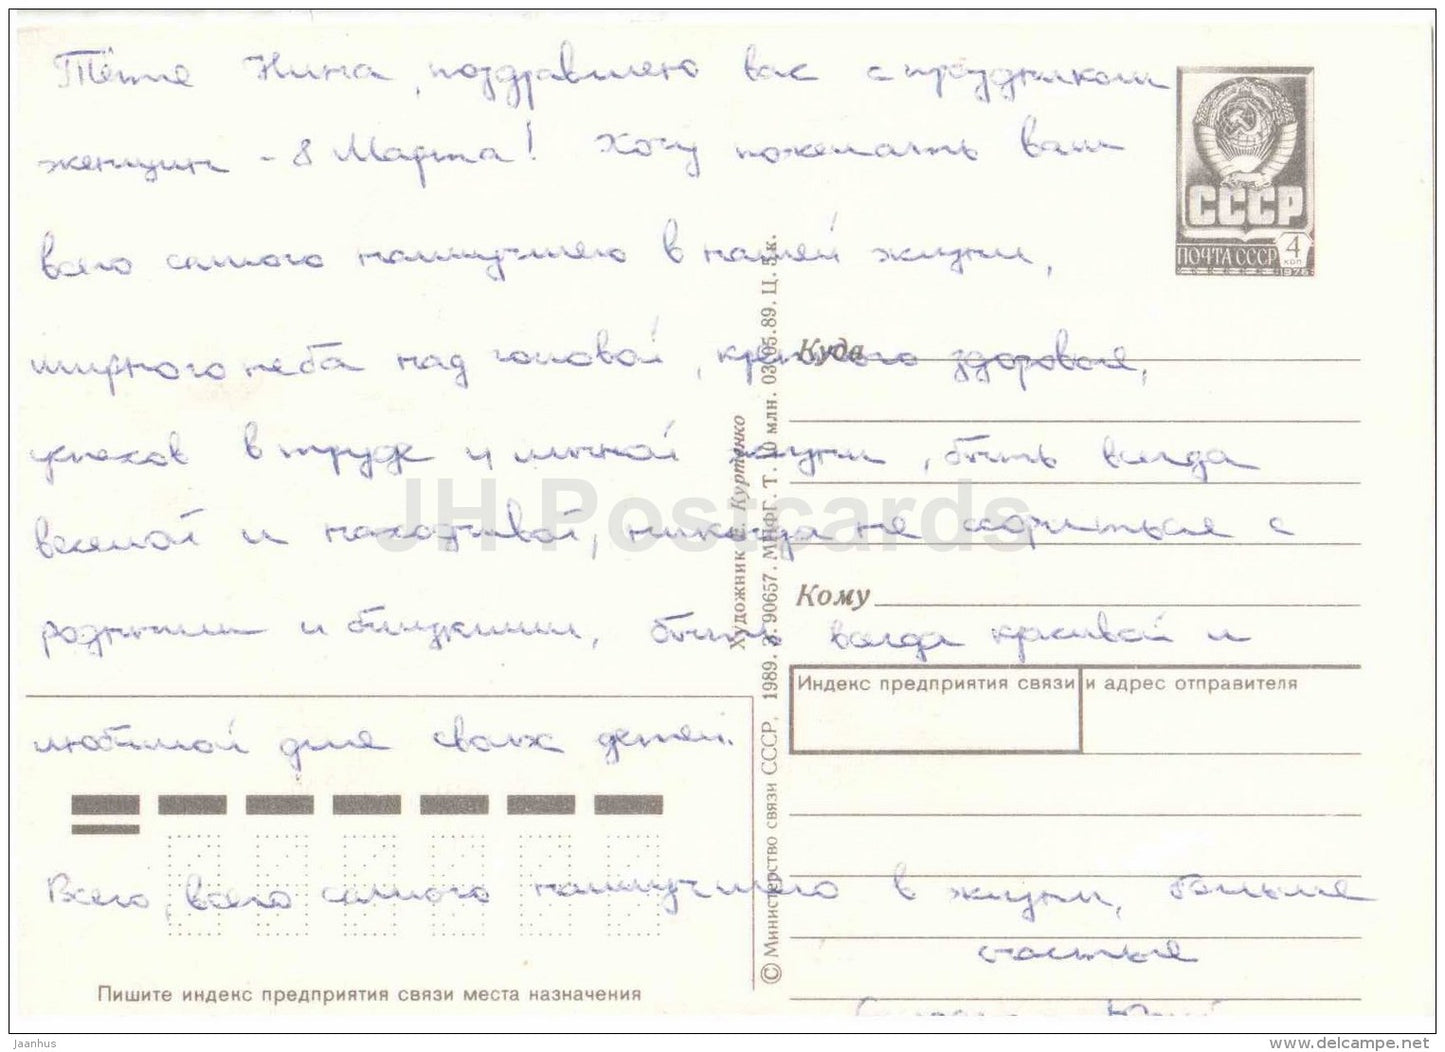 Тётя Нина, поздравляю вас с праздником
женщин - 8 Марта! Хочу пожелать вам
всего самого наилучшего в вашей жизни,
мирного неба над головой, крепкого здоровья,
успехов в труде и личной жизни, быть всегда
веселой и находчивой, никогда не ссориться с
родными и близкими, быть всегда красивой и
любимой для своих детей.
Всего, всего самого наилучшего в жизни, больше
счастья
Юрий
СССР
ПОЧТА СССР 4 коп
1976
Куда
Кому
Индекс предприятия связи и адрес отправителя
Пишите индекс предприятия связи места назначения
Художник Куртенко
© Министерство связи СССР, 1989. З. 90657. МПФГ. Т. 10 млн. 03.05.89. Ц. 5 к.
JH Postcards
Jaanhus
www.delcampe.net